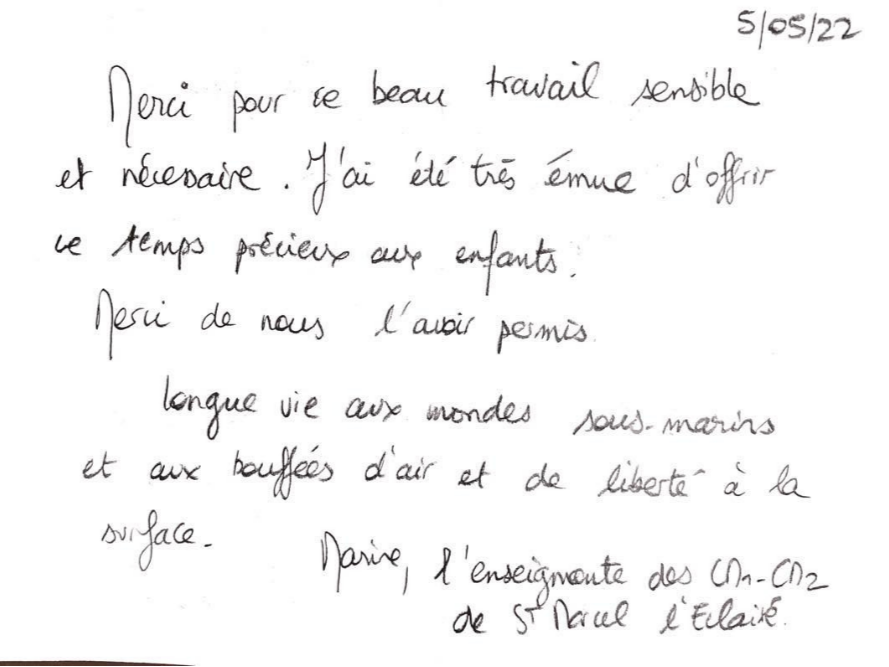 5/05/22
Merci pour ce beau travail sensible
et nécessaire. J'ai été très émue d'offrir
ce temps précieux aux enfants.
Merci de nous l'avoir permis
longue vie aux mondes sous-marins
et aux bouffées d'air et de liberté à la
surface.
Marine, l'enseignante des CM1-CM2
de St Marcel l'Eclairé.